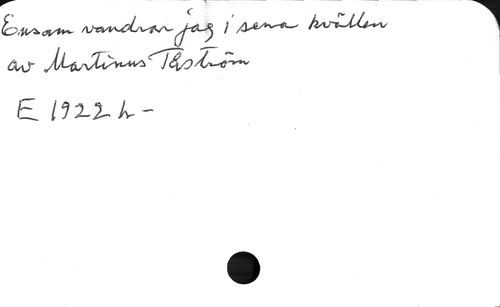 Ensam vandrar jag i sena kvällen
av Martinus
E 1922 h -